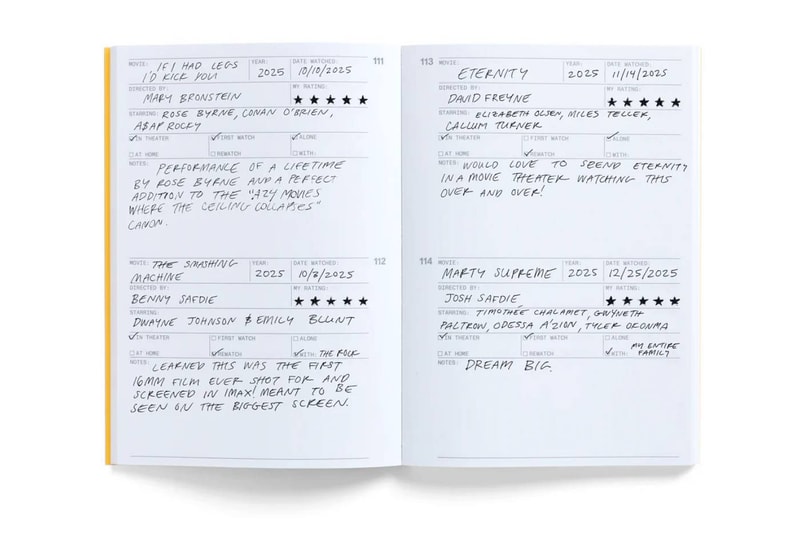 MOVIE: IF I HAD LEGS YEAR: DATE WATCHED: 111
I'D KICK YOU 2025 10/10/2025
DIRECTED BY: MY RATING:
MARY BRONSTEIN ★ ★ ★ ★ ★
STARRING: ROSE BYRNE, CONAN O'BRIEN,
A$AP ROCKY
☑ IN THEATER ☑ FIRST WATCH ☑ ALONE
☐ AT HOME ☐ REWATCH ☐ WITH:
NOTES: PERFORMANCE OF A LIFETIME
BY ROSE BYRNE AND A PERFECT
ADDITION TO THE "A24 MOVIES
WHERE THE CEILING COLLAPSES"
CANON.
MOVIE: THE SMASHING YEAR: DATE WATCHED: 112
MACHINE 2025 10/3/2025
DIRECTED BY: MY RATING:
BENNY SAFDIE ★ ★ ★ ★ ★
STARRING:
DWAYNE JOHNSON & EMILY BLUNT
☑ IN THEATER ☐ FIRST WATCH ☐ ALONE
☐ AT HOME ☑ REWATCH ☑ WITH: THE ROCK
NOTES: LEARNED THIS WAS THE FIRST
16MM FILM EVER SHOT FOR AND
SCREENED IN IMAX! MEANT TO BE
SEEN ON THE BIGGEST SCREEN.
113 MOVIE: YEAR: DATE WATCHED:
ETERNITY 2025 11/14/2025
DIRECTED BY: MY RATING:
DAVID FREYNE ★ ★ ★ ★ ★
STARRING: ELIZABETH OLSEN, MILES TELLER,
CALLUM TURNER
☑ IN THEATER ☐ FIRST WATCH ☑ ALONE
☐ AT HOME ☑ REWATCH ☐ WITH:
NOTES: WOULD LOVE TO SPEND ETERNITY
IN A MOVIE THEATER WATCHING THIS
OVER AND OVER!
114 MOVIE: YEAR: DATE WATCHED:
MARTY SUPREME 2025 12/25/2025
DIRECTED BY: MY RATING:
JOSH SAFDIE ★ ★ ★ ★ ★
STARRING: TIMOTHÉE CHALAMET, GWYNETH
PALTROW, ODESSA A'ZION, TYLER OKONMA
☑ IN THEATER ☑ FIRST WATCH ☐ ALONE
☐ AT HOME ☐ REWATCH ☑ WITH: MY ENTIRE
FAMILY
NOTES: DREAM BIG.